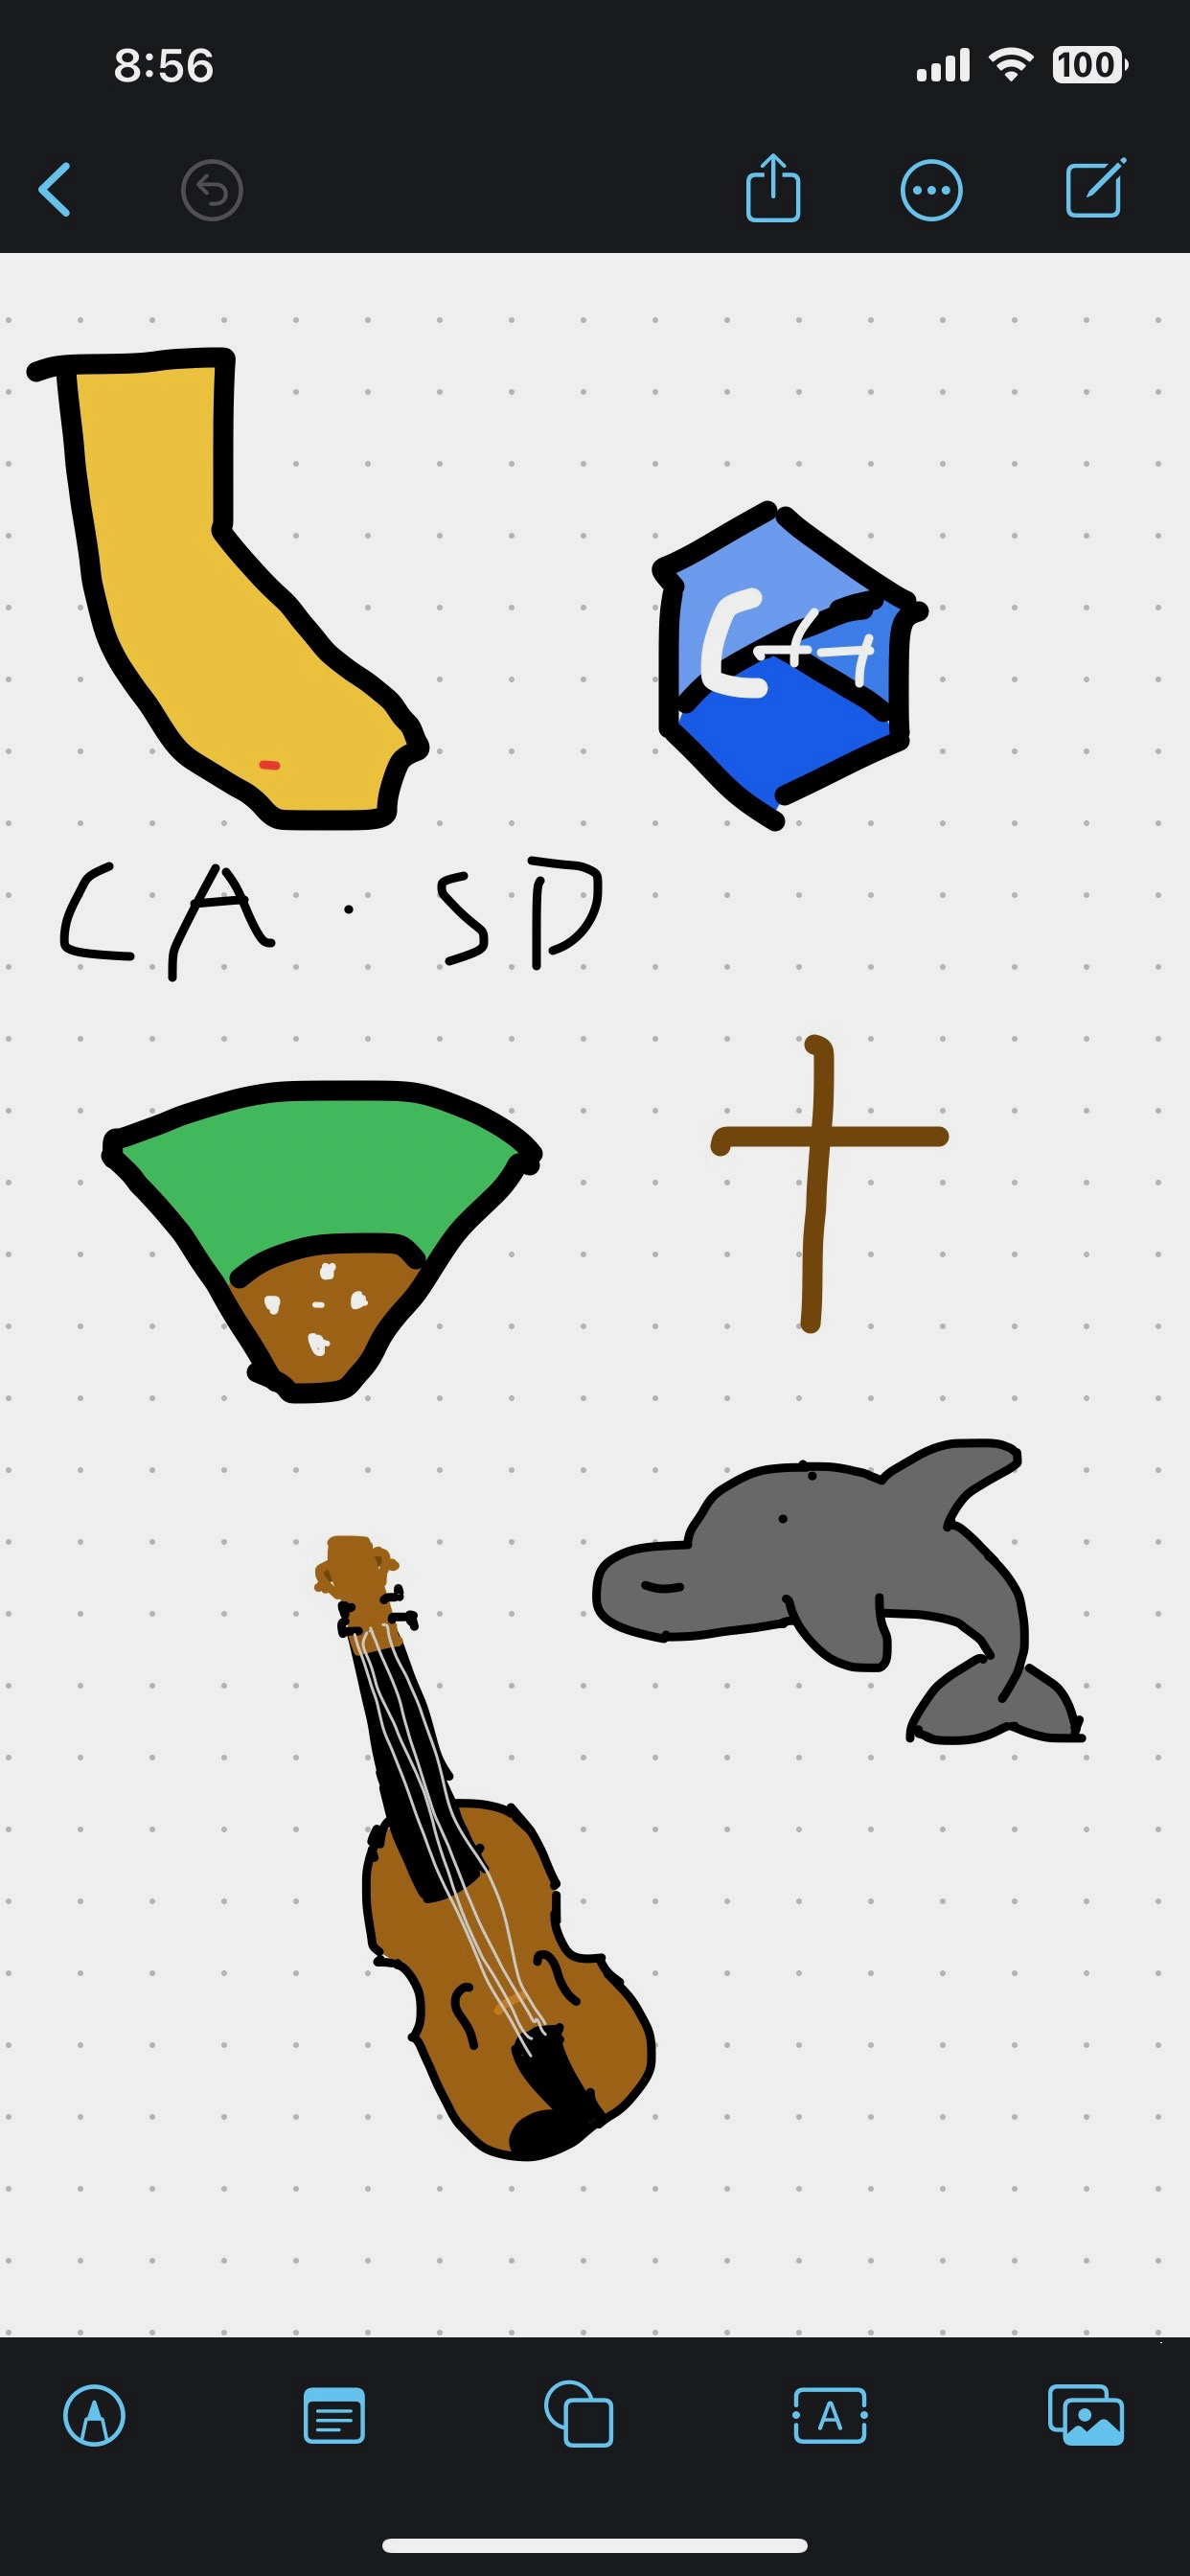 8:56
100
C++
CA · SD